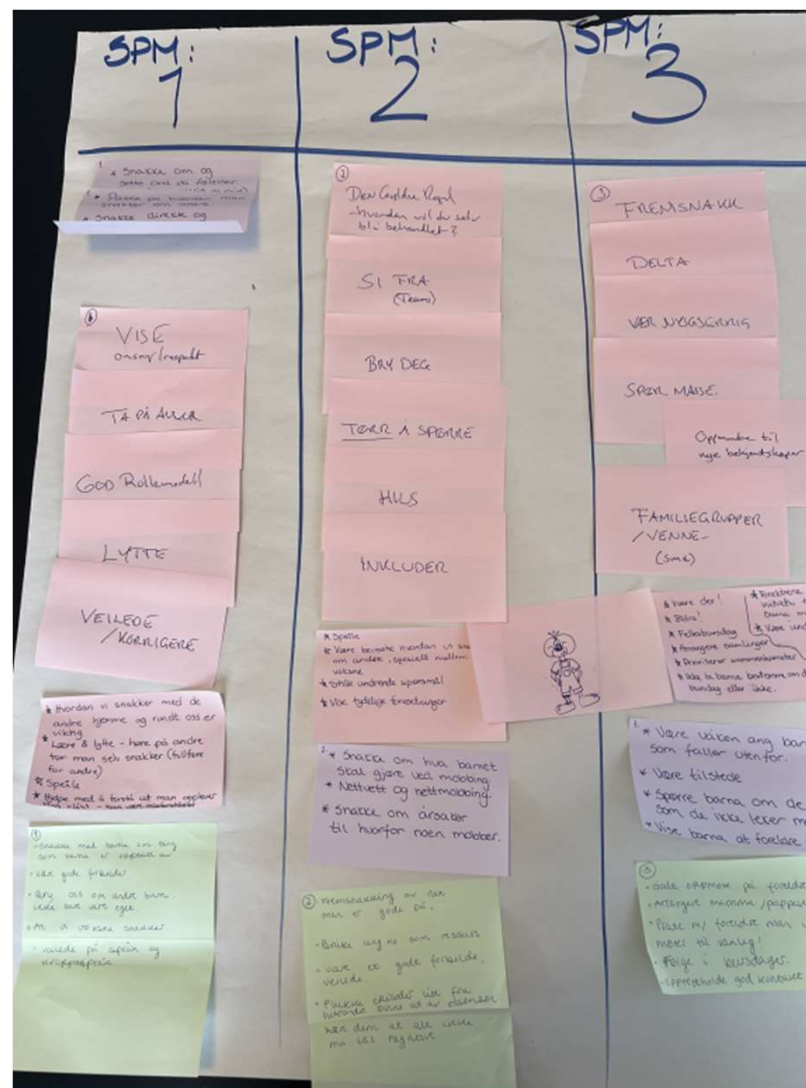 SPM:
1
* Snakke om og
sette ord på følelser
* Passe på hvordan man
snakker om andre
* Snakke direkte og
VISE
omsorg/respekt
TA PÅ ALVOR
GOD Rollemodell
LYTTE
VEILEDE
/KORRIGERE
* Hvordan vi snakker med de
andre hjemme og rundt oss er
viktig
* Lære å lytte - høre på andre
før man selv snakker (tullføre
før andre)
* Speile
* Hjelpe med å forstå at man opplever
1
• Snakke med barna om ting
som barna er opptatt av
• være gode forbilder
• Bry oss om andre barn
• At vi voksne snakker
• veilede på språk og
kroppsspråk
SPM:
2
2
Den Gyldne Regel
- hvordan vil du selv
bli behandlet?
SI FRA
(Teams)
BRY DEG
TØRR Å SPØRRE
HILS
INKLUDER
* Speile
* Være bevisste hvordan vi
om andre, spesielt mellom
voksne
* Stille undrende spørsmål
* Vise tydelige forventninger
2. * Snakke om hva barnet
skal gjøre ved mobbing
* Nettvett og nettmobbing
* Snakke om årsaker
til hvorfor noen mobber.
2
• Fremsnakking av
man er gode på.
• Bruke ung.no som ressurs
• være et gode forbilde,
veilede.
• Plukke
hverandre
lær dem at alt ikke
må tas negativt
SPM:
3
3
FREMSNAKK
DELTA
VÆR NYSGJERRIG
SPØR MASSE.
Oppmuntre til
nye bekjentskaper
FAMILIEGRUPPER
/VENNE-
(små)
* Være der!
* Bidra!
* Fellesbursdag
* Arrangere samlinger
* Prioriterer sammenkomster
* Ikke la barna bestemme om
bursdag eller ikke.
* Foreldrene
initiativ
barna
* Være
* Være våken ang
som faller utenfor.
* Være tilstede
* Spørre barna om de
som de ikke leker
* Vise barna at foreldre
3
• Gode oppmøte på
• Arrangere mamma/pappa
• Prate m/ foreldre man
møter til vanlig!
• Følge i bursdager.
• opprettholde god kontakt